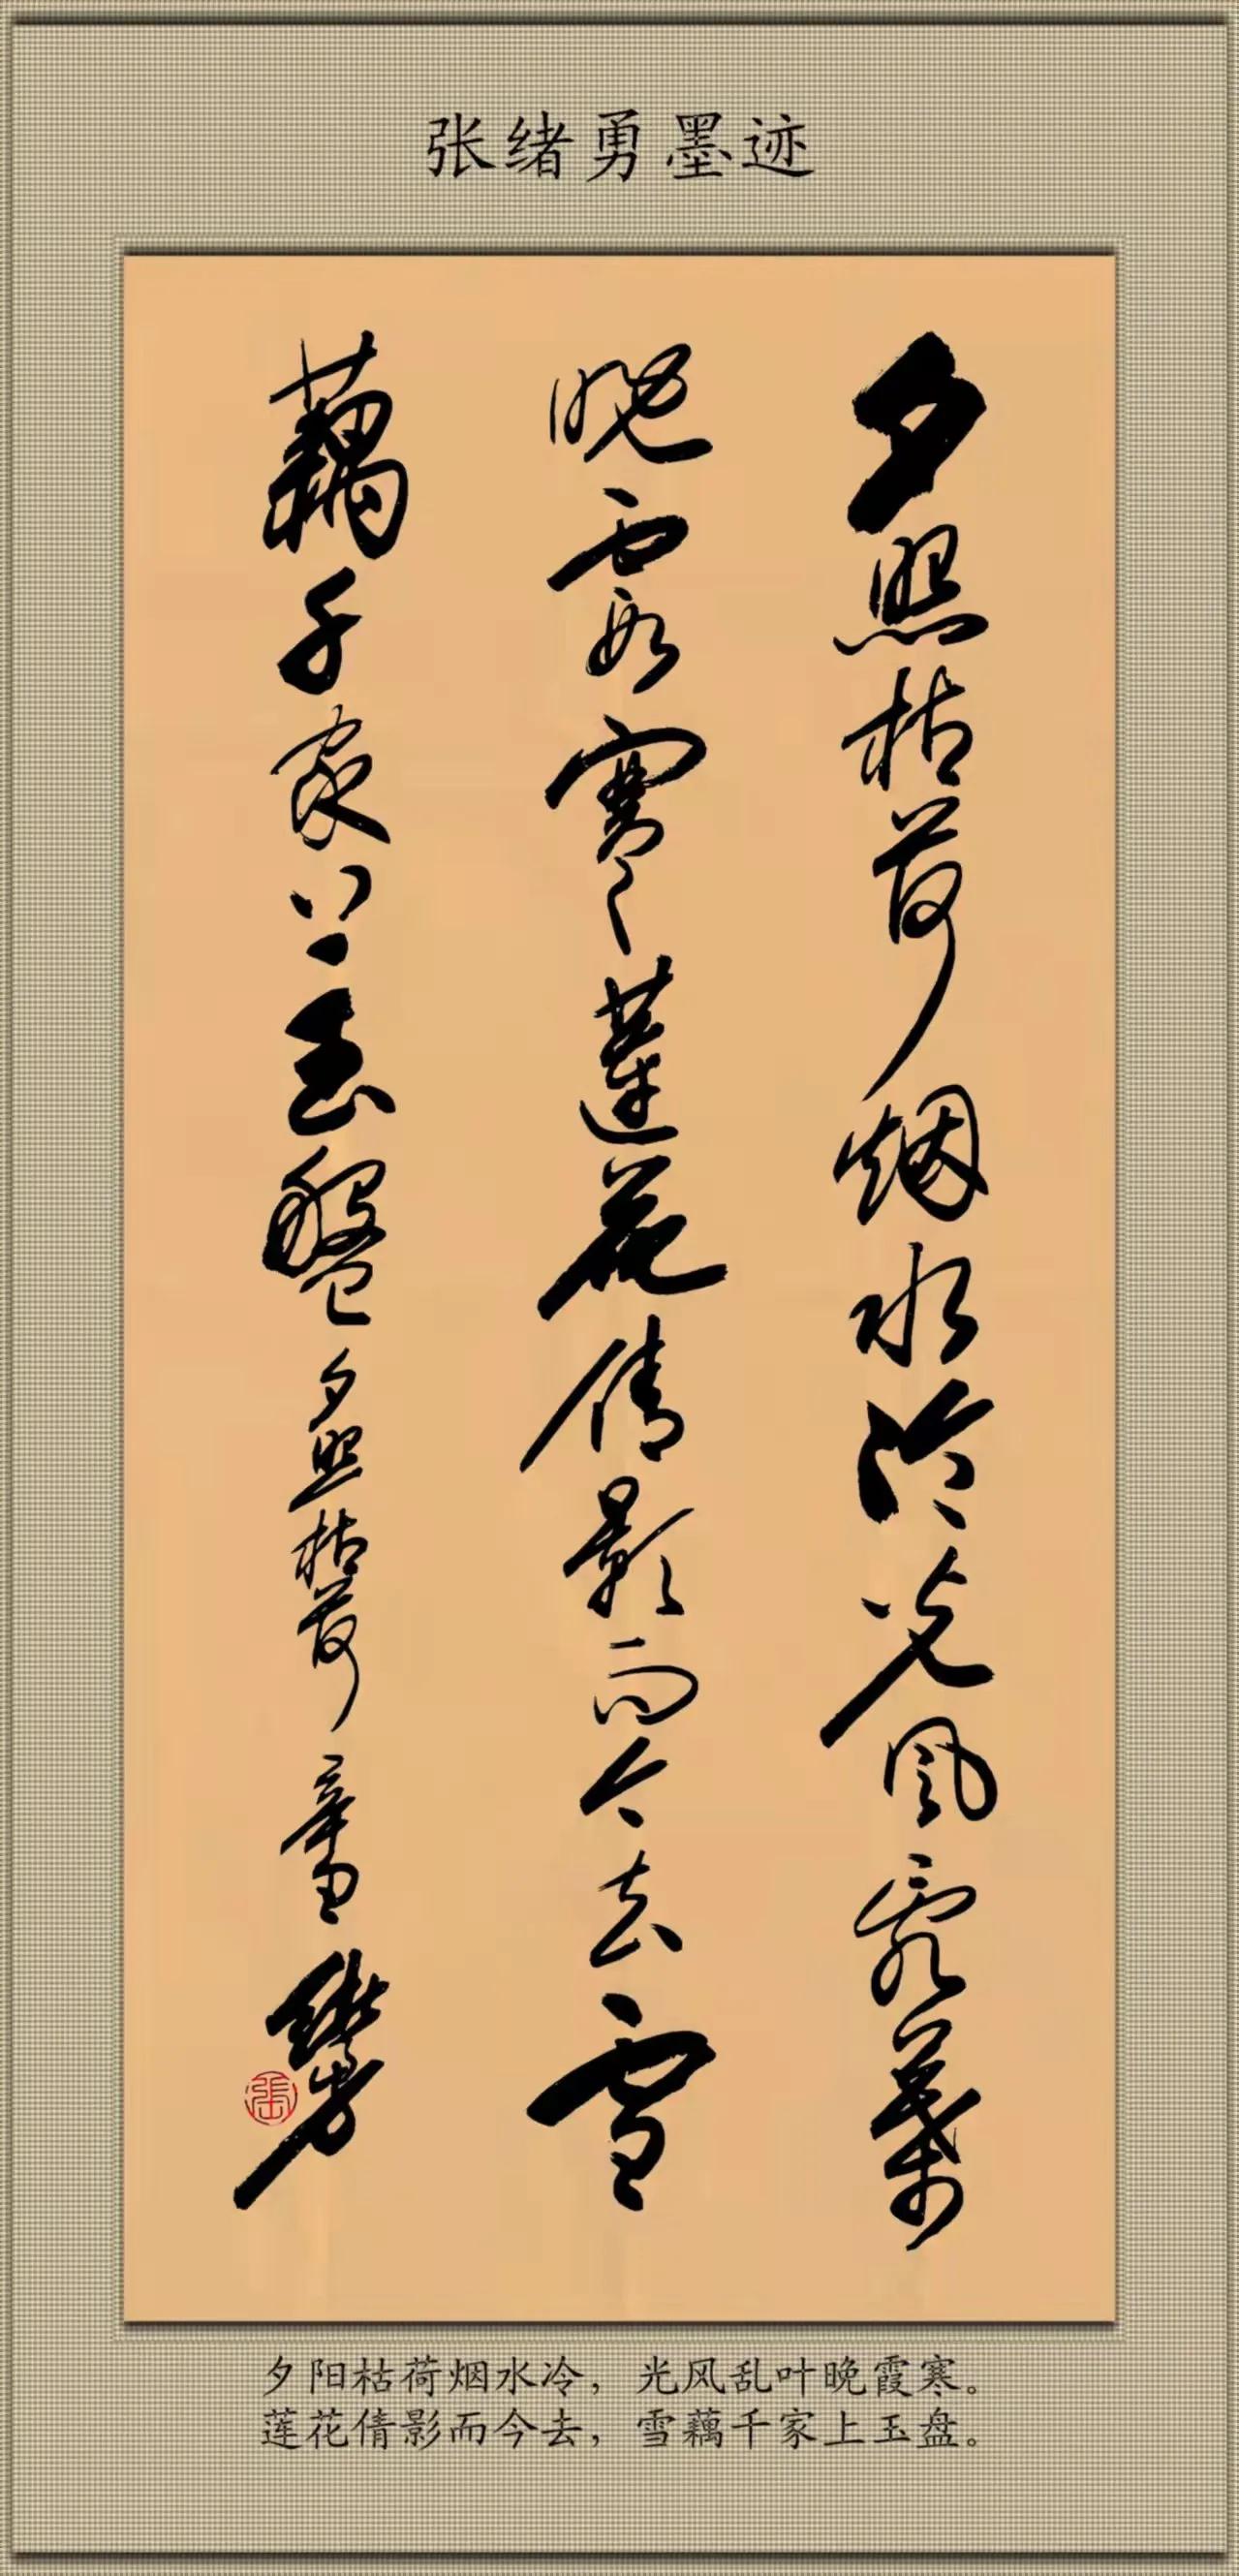 张绪勇墨迹
夕照枯荷烟水冷光风乱叶
晚霞寒莲花倩影而今去雪
藕千家上玉盘夕照枯荷章绪勇
張
夕阳枯荷烟水冷，光风乱叶晚霞寒。
莲花倩影而今去，雪藕千家上玉盘。